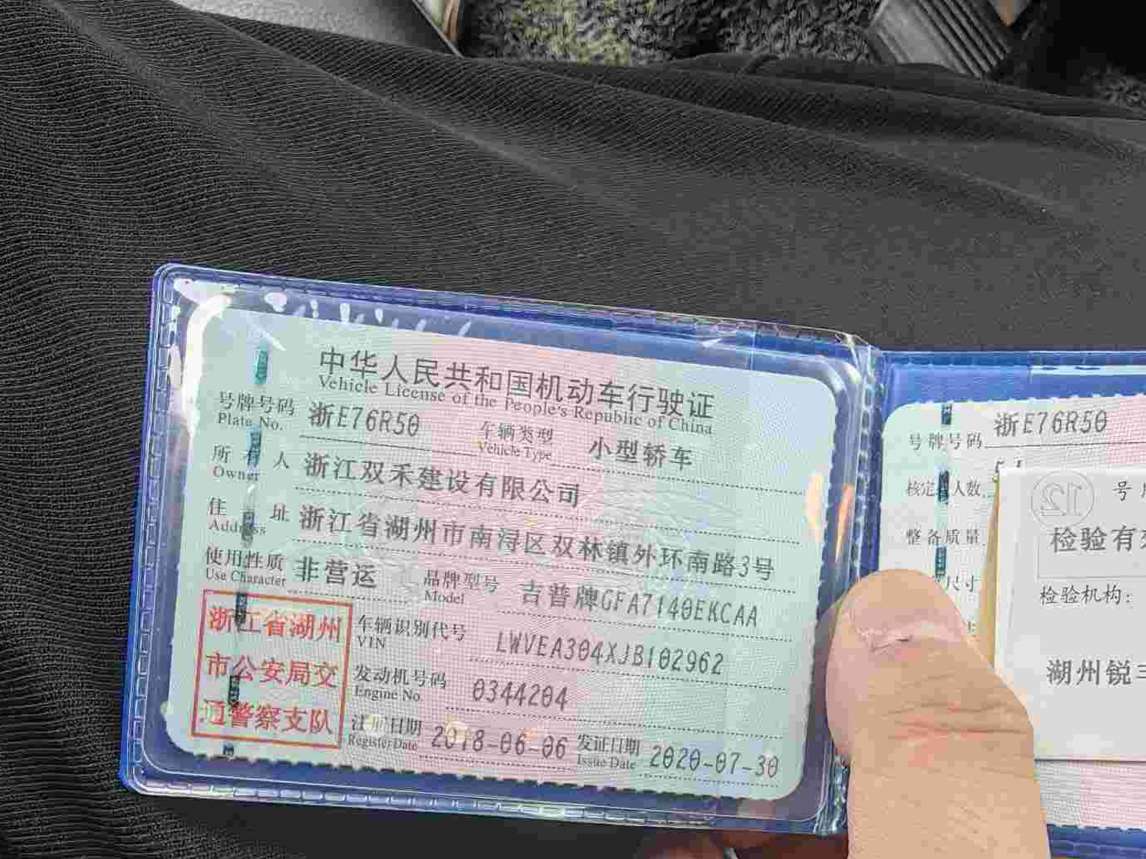 中华人民共和国机动车行驶证
Vehicle License of the People's Republic of China
号牌号码 浙E76R50 车辆类型 小型轿车
Plate No. Vehicle Type
所有人 浙江双禾建设有限公司
Owner
住址 浙江省湖州市南浔区双林镇外环南路3号
Address
使用性质 非营运 品牌型号 吉普牌GFA7140EKCAA
Use Character Model
浙江省湖州
市公安局交
通警察支队
车辆识别代号 LWVEA304XJB102962
VIN
发动机号码 0344204
Engine No
注册日期 2018-06-06 发证日期 2020-07-30
Register Date Issue Date
号牌号码 浙E76R50
核定 人数
整备质量
尺寸
12 号
检验有
检验机构:
湖州锐